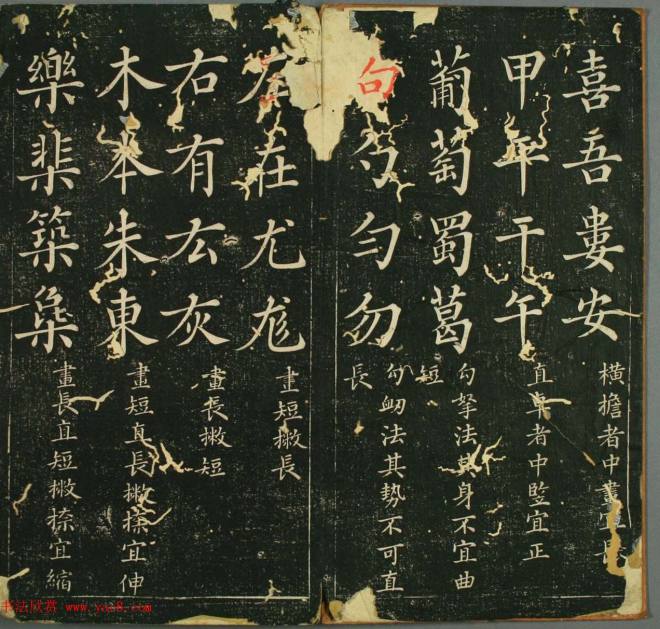 喜吾婁安
橫擔者中畫宜長
甲平干午
直卓者中竪宜正
葡萄蜀葛
勾拏法其身不宜曲
短
句勻勿
勾法其勢不可直
長
左在尤尨
畫短撇長
右有厷灰
畫長撇短
木本朱東
畫短直長撇捺宜伸
樂棐築
畫長直短撇捺宜縮
书法欣赏 www.yac8.com